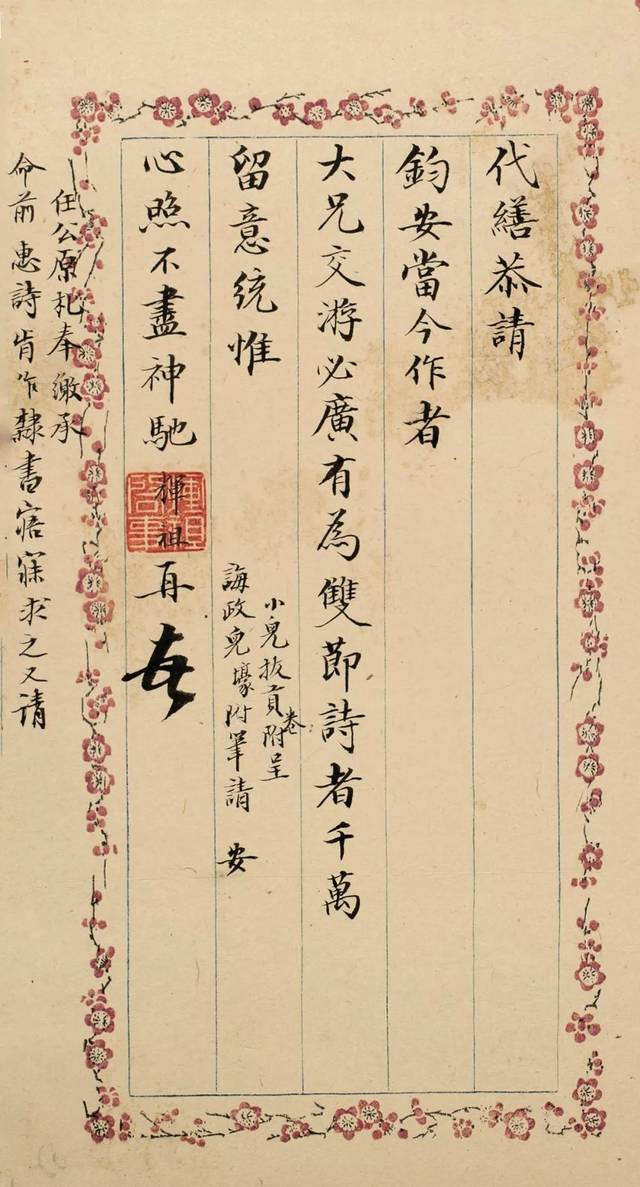 代繕恭請
鈞安當今作者
大兄交游必廣有為雙節詩者千萬
留意統惟
小兒拔貢卷附呈
誨政兒壕附筆請 安
心照不盡神馳 輝祖 再
任公原札奉繳承
命前惠詩肯作隸書寤寐求之又請